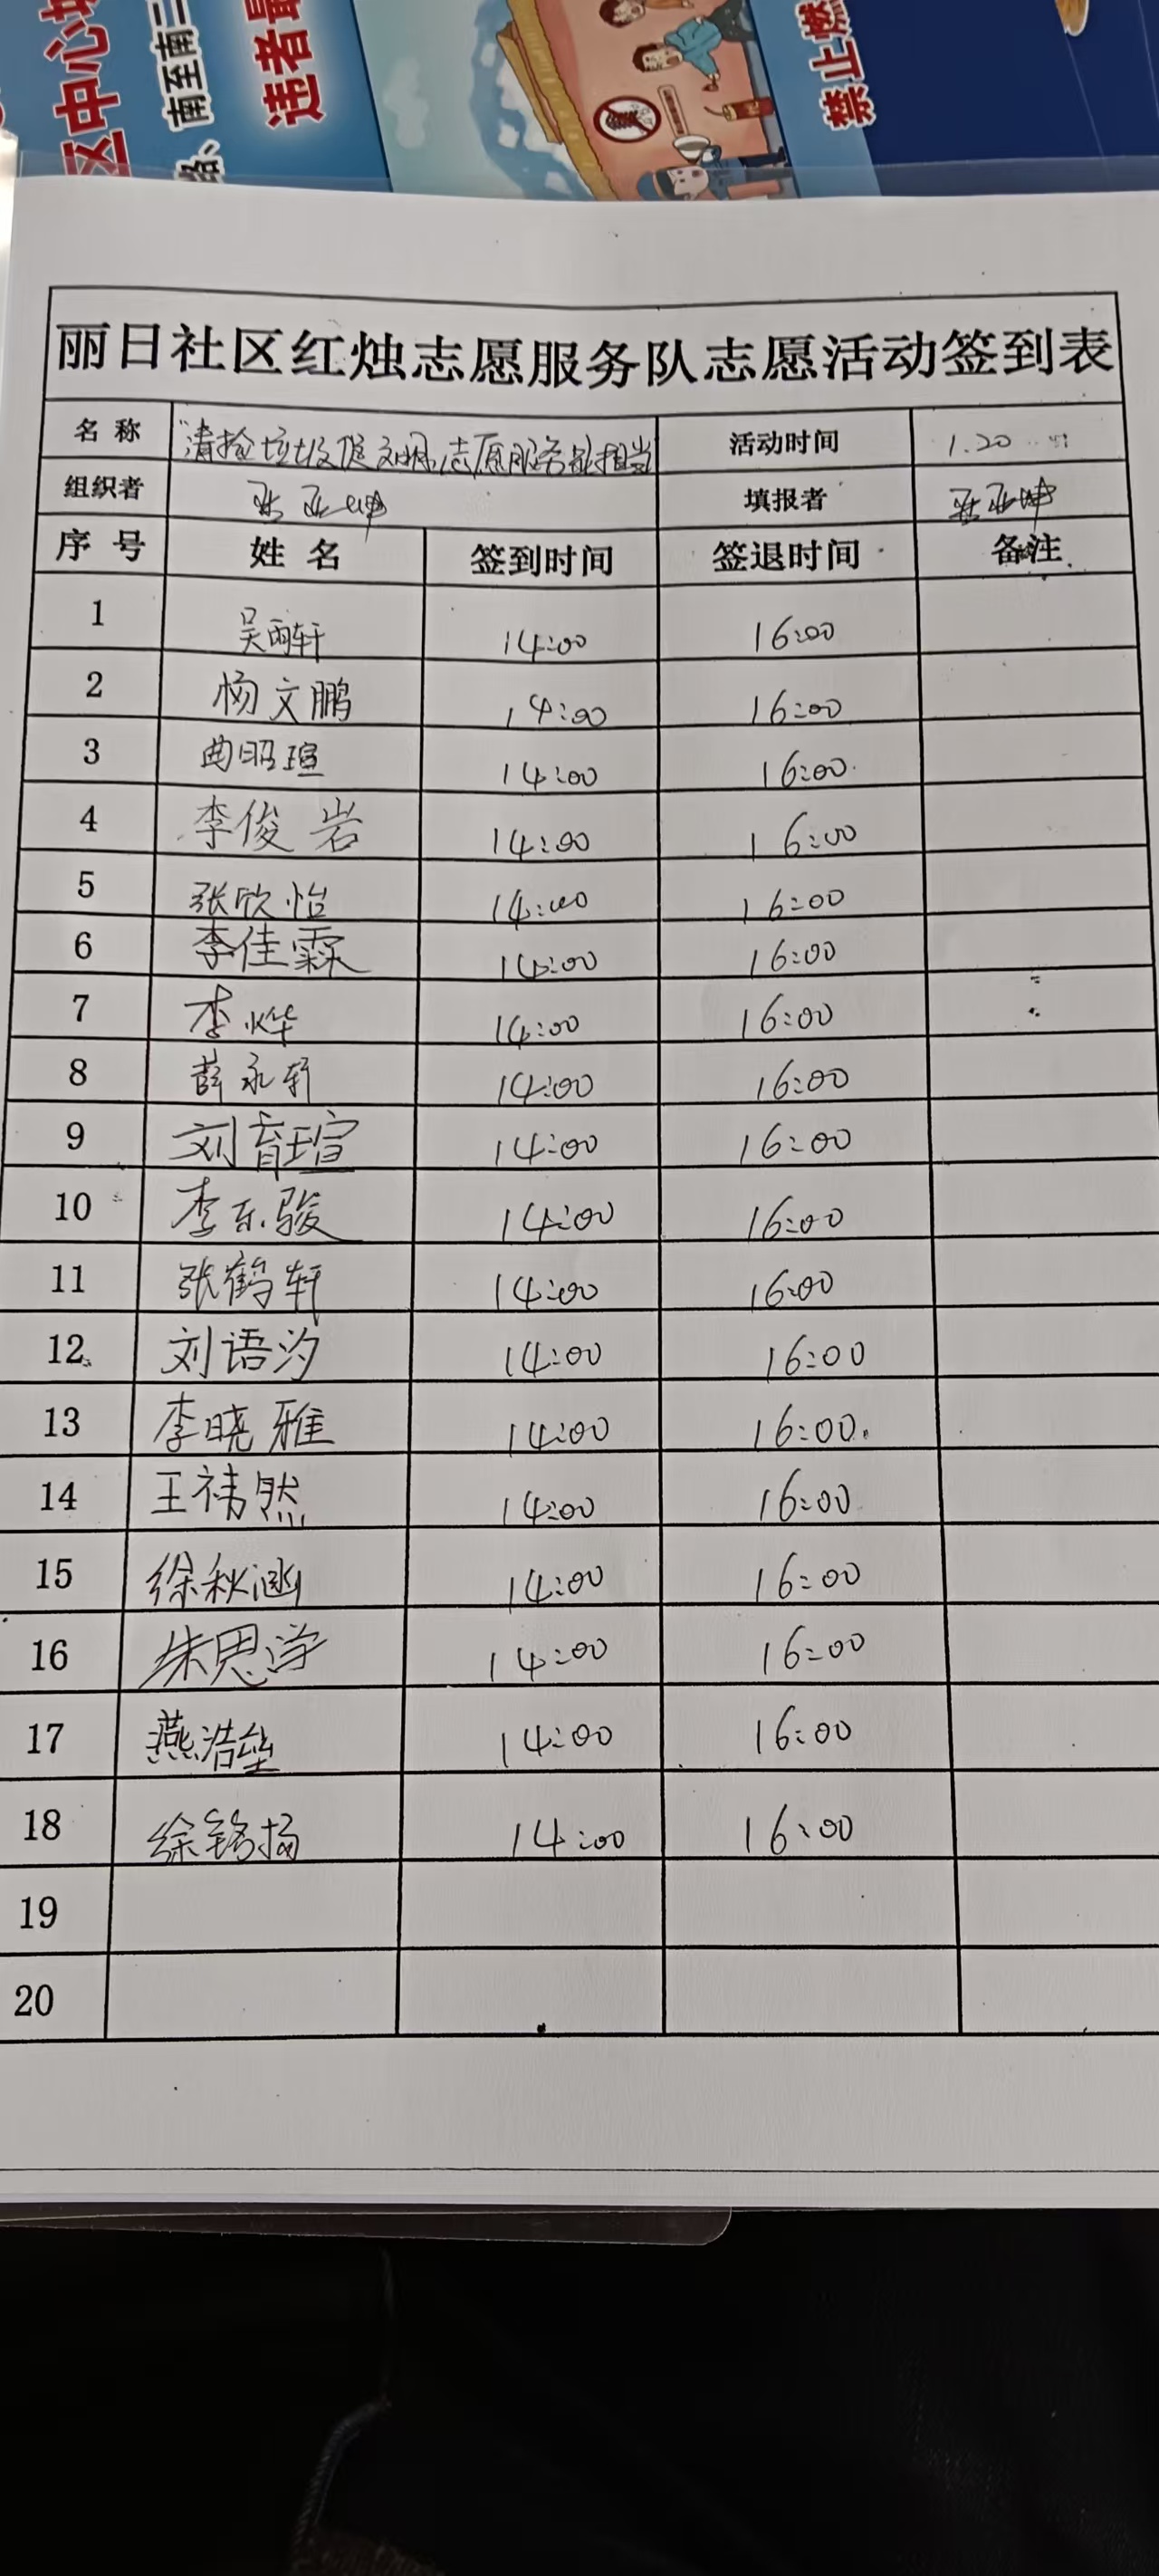 区中心城
南至南二
违者最
禁止燃
丽日社区红烛志愿服务队志愿活动签到表
名 称 "清捡垃圾促文明,志愿服务勇担当 活动时间 1.20
组织者 填报者
序 号 姓 名 签到时间 签退时间 备注
1 吴雨轩 14:00 16:00
2 杨文鹏 14:00 16:00
3 曲昭瑄 14:00 16:00
4 李俊岩 14:00 16:00
5 张欣怡 14:00 16:00
6 李佳霖 14:00 16:00
7 李烨 14:00 16:00
8 薛永轩 14:00 16:00
9 刘育瑄 14:00 16:00
10 李东骏 14:00 16:00
11 张鹤轩 14:00 16:00
12 刘语汐 14:00 16:00
13 李晓雅 14:00 16:00
14 王祎然 14:00 16:00
15 徐秋涵 14:00 16:00
16 朱思学 14:00 16:00
17 燕浩垒 14:00 16:00
18 徐铭扬 14:00 16:00
19
20